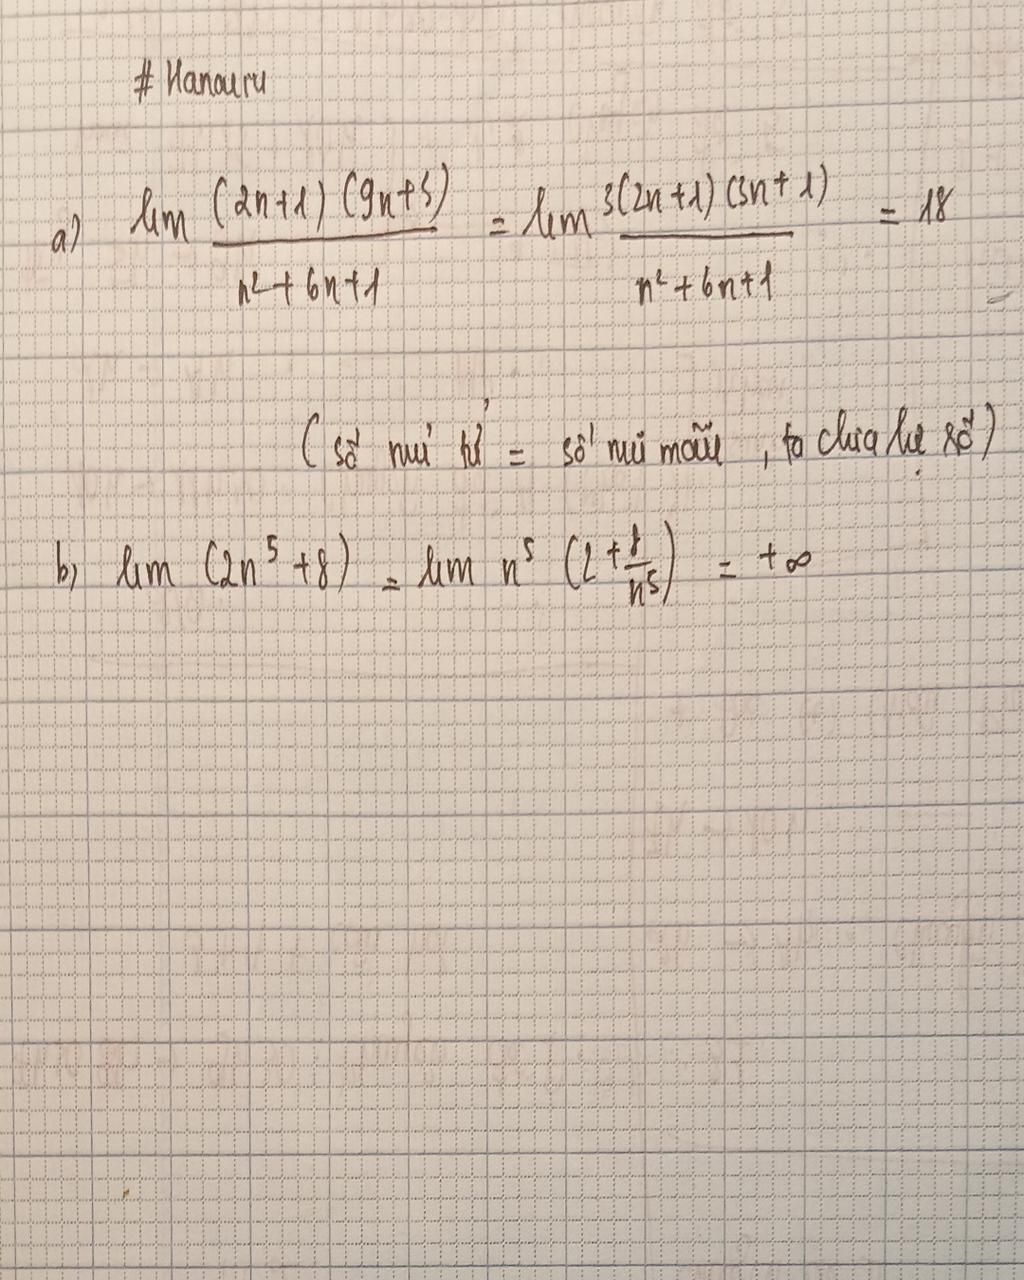 # Hanouru
a) lim (2n+1)(9n+3) / n² + 6n+1 = lim 3(2n+1)(3n+1) / n² + 6n+1 = 18
(số mũ tử = số mũ mẫu, ta chia hệ số)
b) lim (2n⁵ +8) = lim n⁵ (2 + 8/n⁵) = +∞